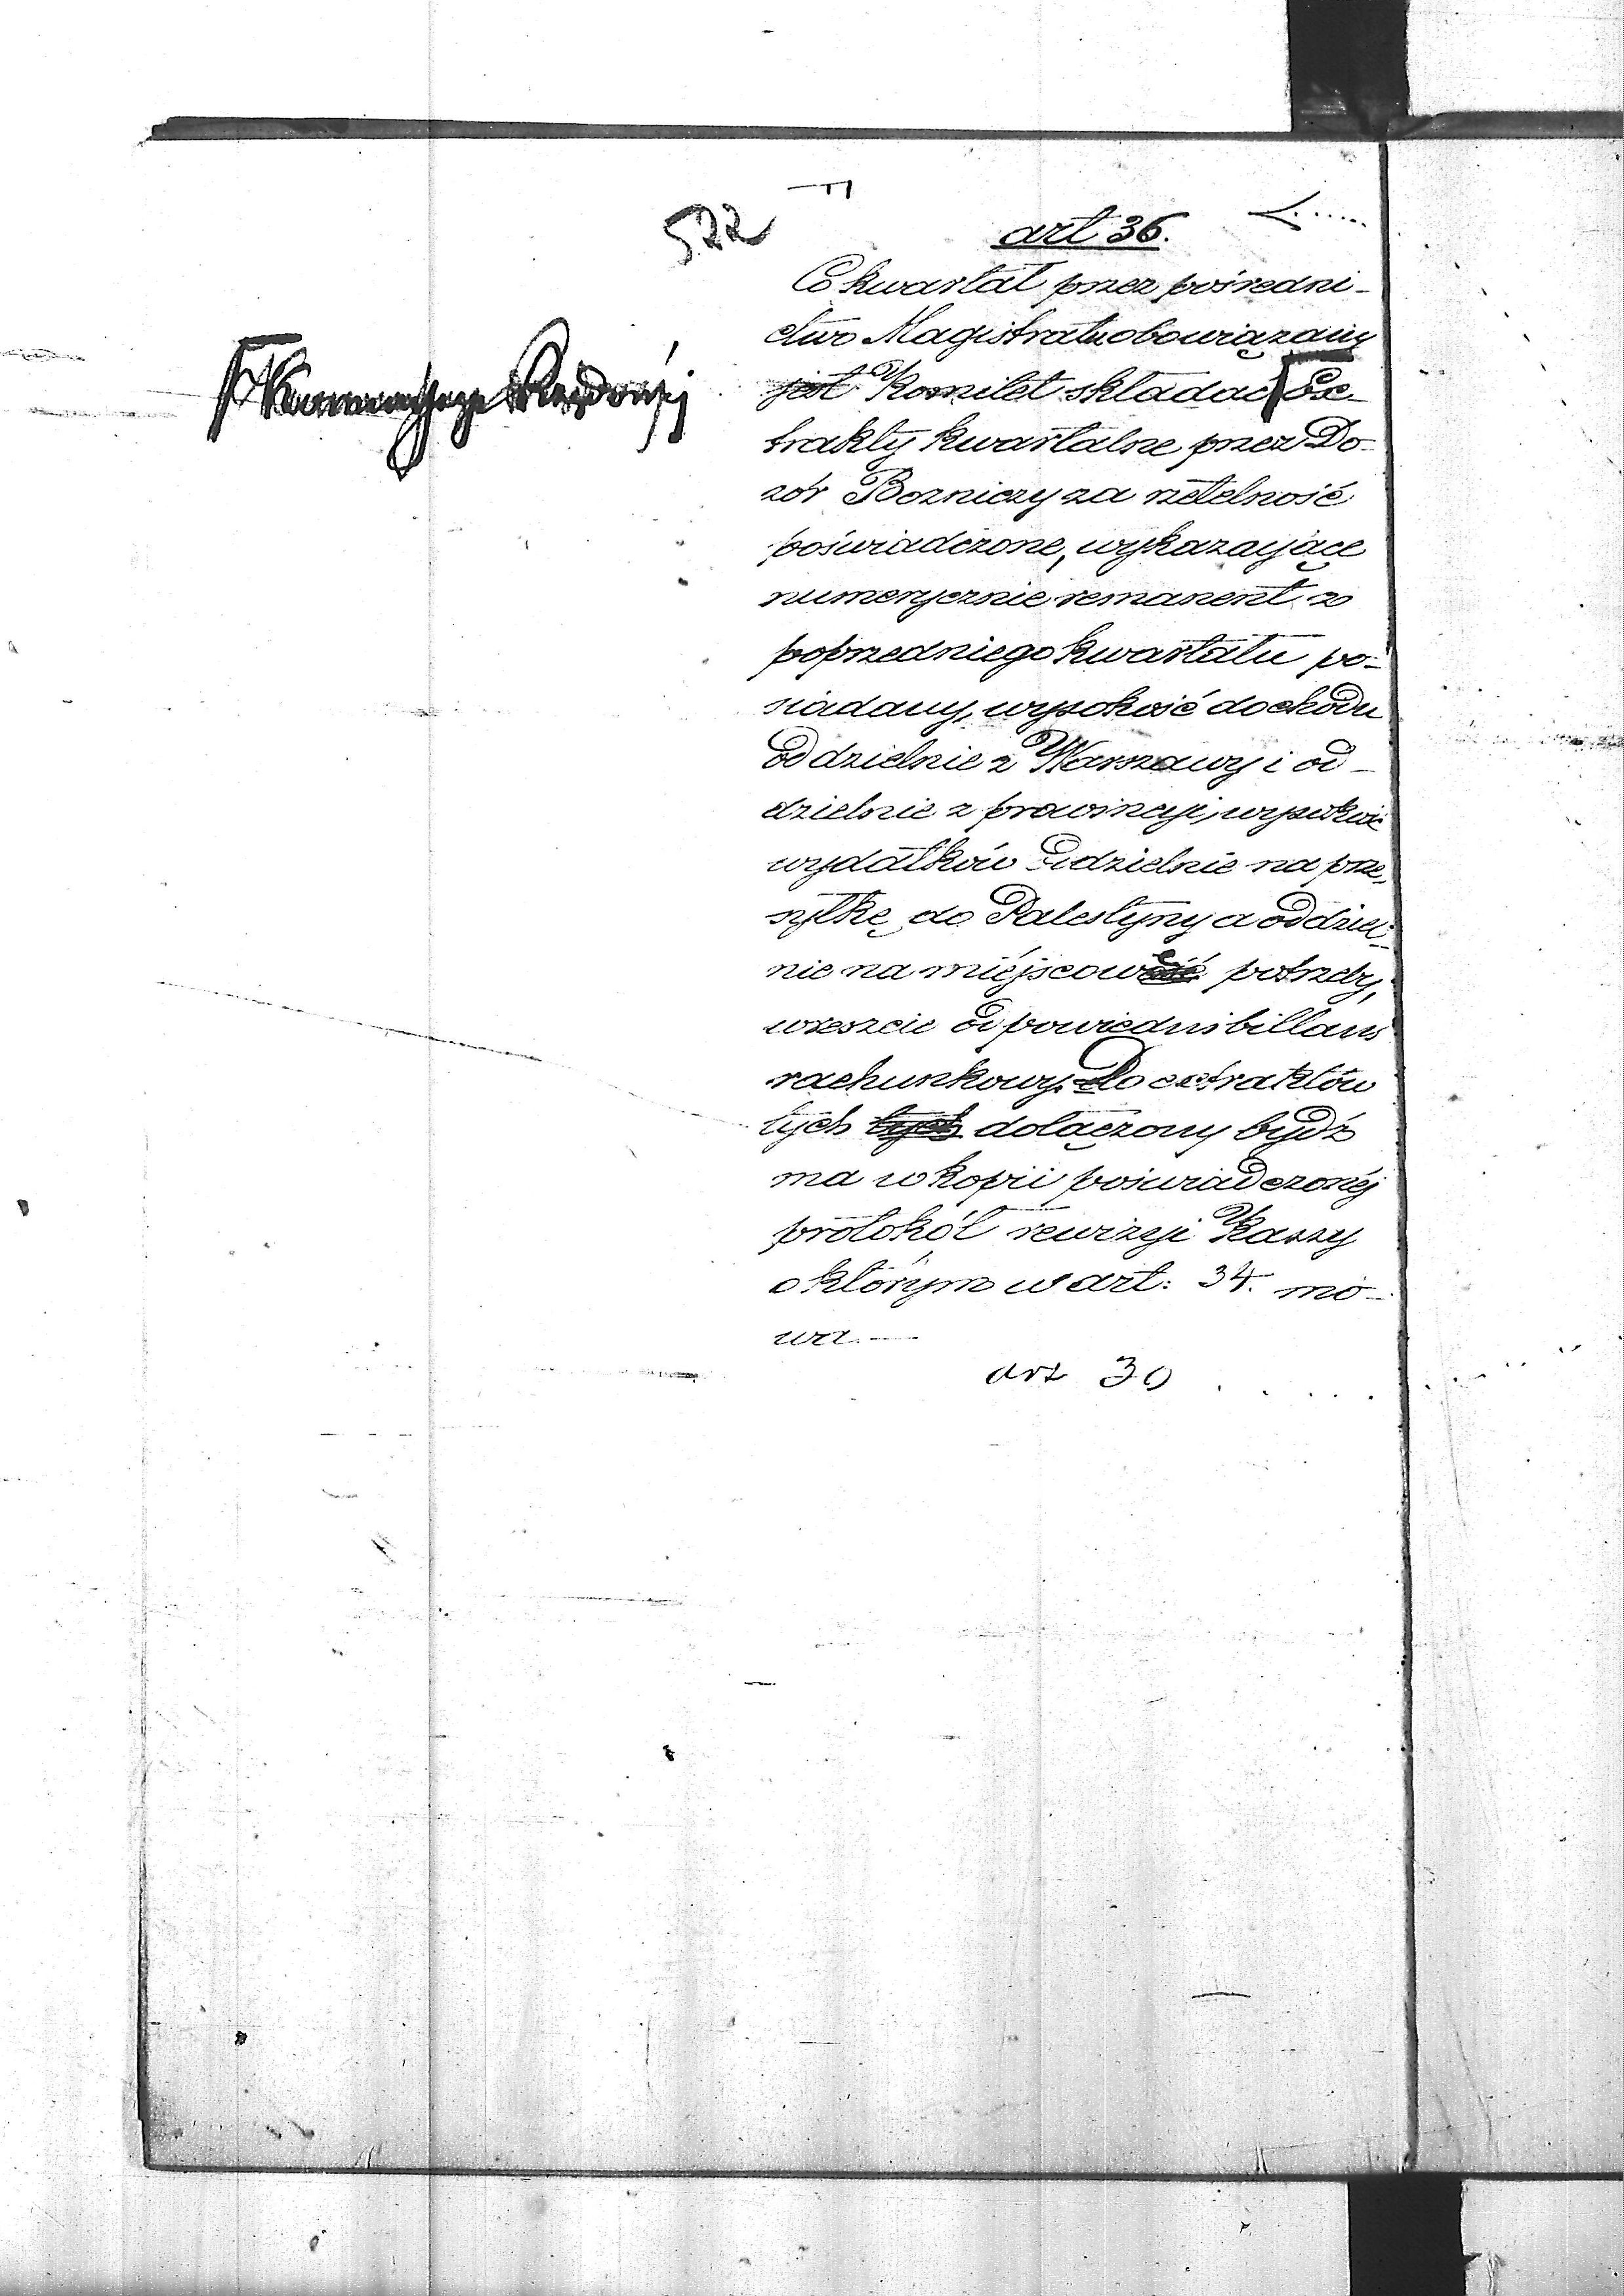 522
art 36.
Co kwartał przez pośredni-
ctwo Magistratu obowiązany
jest Komitet składać Ex-
trakty kwartalne przez Do-
zór Bozniczy za rzetelność
poświadczone, wykazające
numerycznie remanent z
poprzedniego kwartału po-
siadany, wysokość dochodu
oddzielnie z Warszawy i od-
dzielnie z prowincyi, wysokość
wydatków oddzielnie na prze-
syłkę do Palestyny a oddziel-
nie na miéjscowe potrzeby,
wreszcie odpowiedni billans
rachunkowy. Do extraktów
tych tych dołączony bydź
ma w kopii poświadczonéj
protokół rewizyi Kassy
o którym w art: 34. mo-
wa.—
Kommissyi Rządowéj
art 30